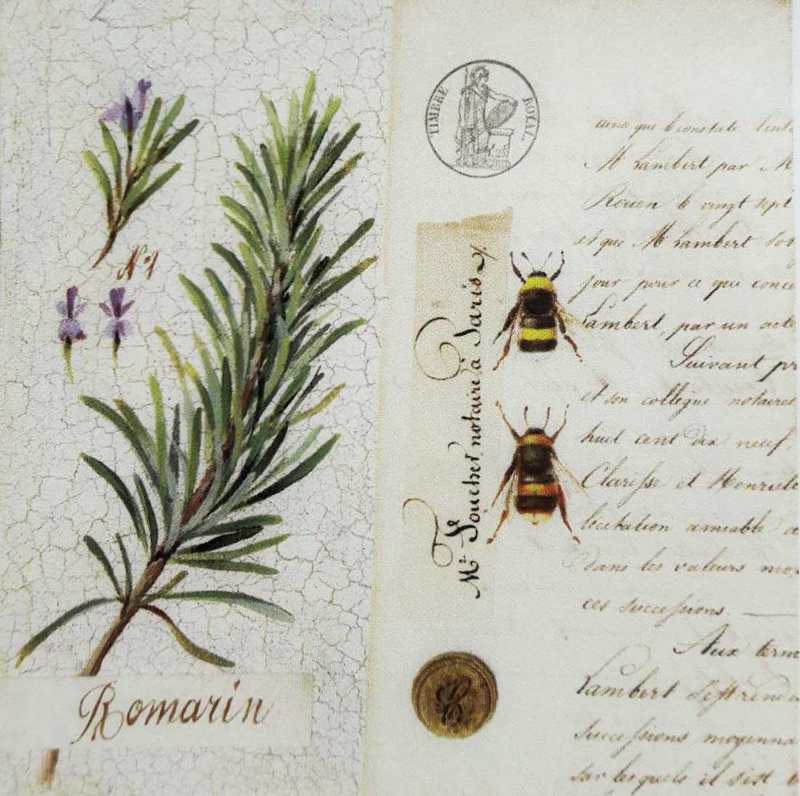 N° 1
Romarin
TIMBRE ROYAL
Mr. Foucher, notaire à Paris
ainsi que le constate
Mr Lambert par M
Rouen le vingt sept
et que Mr Lambert
jour pour ce que conce
Lambert, par un acte
Suivant pr
et son collègue notaires
huit cent dix neuf.
Clarisse et Henriette
licitation amiable a
dans les valeurs
ces successions.
Aux term
Lambert
successions moyenna
sur lesquels il s'est